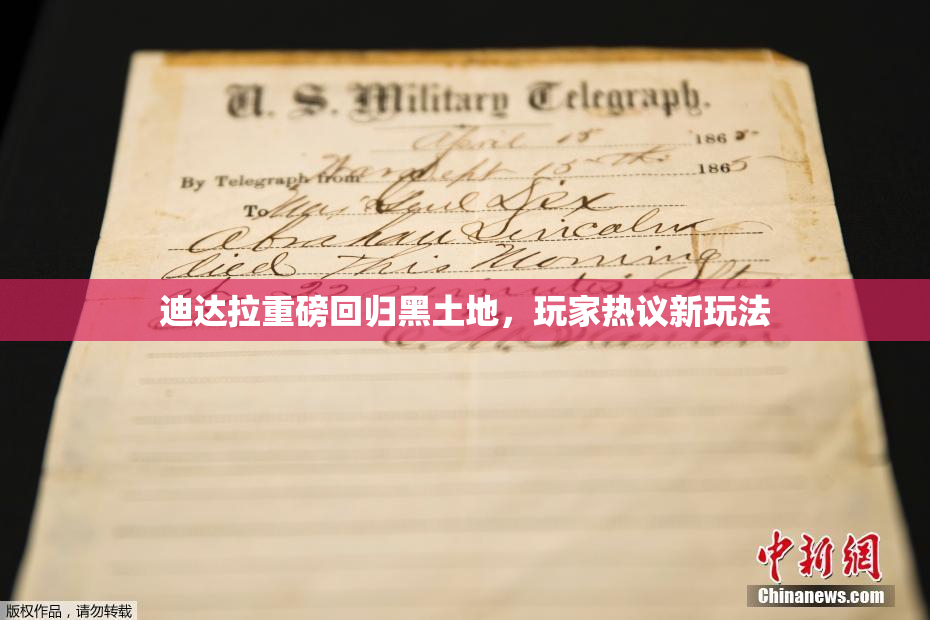 U. S. Military Telegraph.
April 15 1865
By Telegraph from War Dept 15th 1865
To Maj Genl Dix
Abraham Lincoln
died This Morning
at 22 minutes after
迪达拉重磅回归黑土地，玩家热议新玩法
E. M. Stanton
中新网
Chinanews.com
版权作品，请勿转载